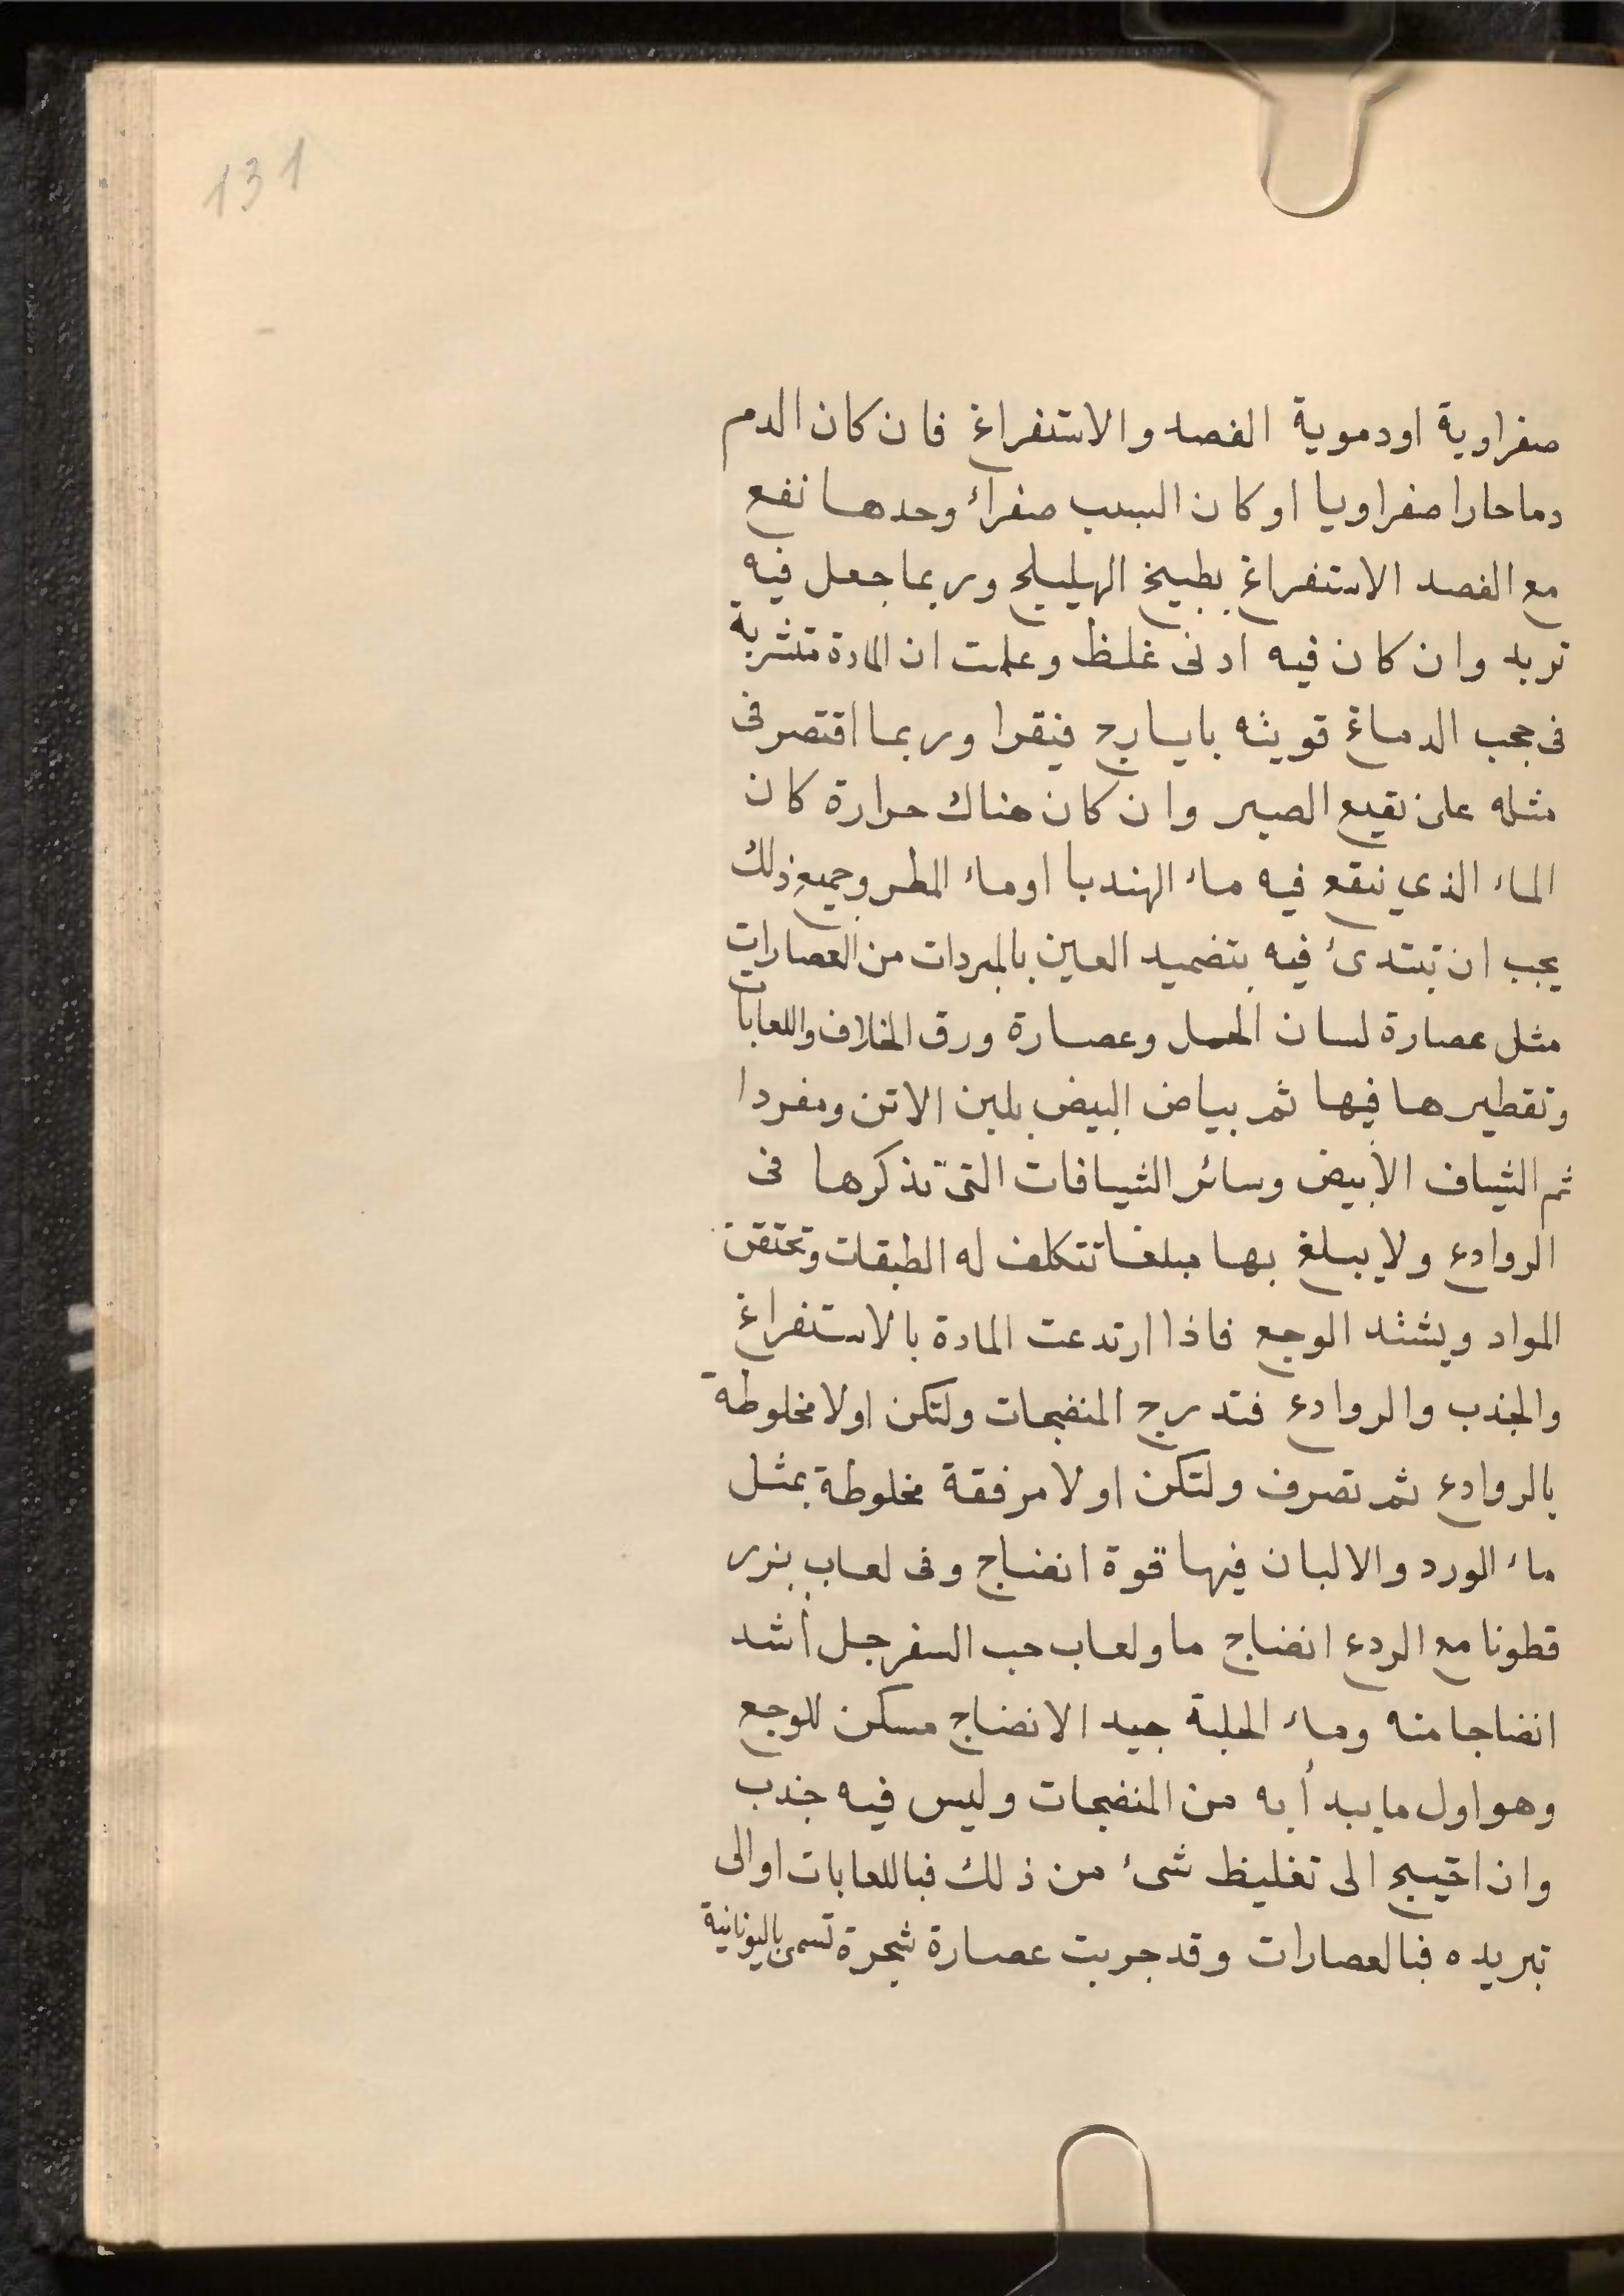 131
صفراوية اودموية الفصد والاستفراغ فان كان الدم
دما حارا صفراويا او كان السبب صفرائ وحدها نفع
مع الفصد الاستفراغ بطبيخ الهليلج وربما جعل فيه
تربد وان كان فيه ادنى غلظ وعلمت ان المادة متشربة
فى حجب الدماغ قويته بايارج فيقرا وربما اقتصر فى
مثله على نقيع الصبر وان كان هناك حرارة كان
الماء الذي ينقع فيه ماء الهندبا اوماء المطر وجميع ذلك
يجب ان تبتدئ فيه بتضميد العين بالمبردات من العصارات
مثل عصارة لسان الحمل وعصارة ورق الخلاف واللعابات
وتقطيرها فيها ثم بياض البيض بلبن الاتن ومفردا
ثم الشياف الأبيض وسائر الشيافات التى نذكرها فى
الروادع ولا يبلغ بها مبلغا تتكلف له الطبقات وتحتقن
المواد ويشتد الوجع فاذا ارتدعت المادة بالاستفراغ
والجذب والروادع فتدرج المنضجات ولتكن اولا مخلوطة
بالروادع ثم تصرف ولتكن اولا مرفقة مخلوطة بمثل
ماء الورد والالبان فيها قوة انضاج وفى لعاب بزر
قطونا مع الردع انضاج ما ولعاب حب السفرجل أشد
انضاجا منه وماء الحلبة جيد الانضاج مسكن للوجع
وهو اول ما يبدأ به من المنضجات وليس فيه جذب
وان احتيج الى تغليظ شئ من ذلك فباللعابات اوالى
تبريده فبالعصارات وقد جربت عصارة شجرة تسمى باليونانية